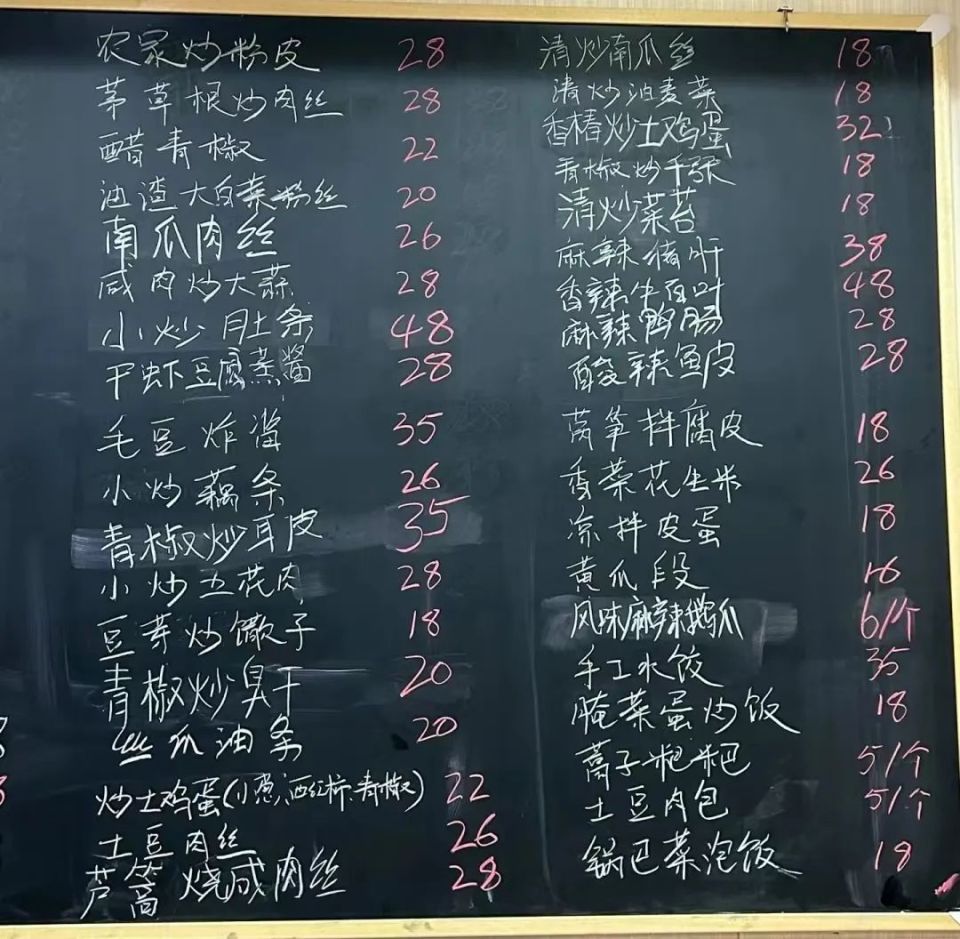 农家炒粉皮 28
茅草根炒肉丝 28
醋青椒 22
油渣大白菜粉丝 20
南瓜肉丝 26
咸肉炒大蒜 28
小炒肚条 48
干虾豆腐蒸酱 28
毛豆炸酱 35
小炒藕条 26
青椒炒耳皮 35
小炒五花肉 28
豆芽炒馓子 18
青椒炒臭干 20
丝瓜油条 20
炒土鸡蛋(小葱、西红柿、青椒) 22
土豆肉丝 26
芦蒿烧咸肉丝 28
清炒南瓜丝 18
清炒油麦菜 18
香椿炒土鸡蛋 32
青椒炒千张 18
清炒菜苔 18
麻辣猪肝 38
香辣牛百叶 48
麻辣鸭肠 28
酸辣鱼皮 28
莴笋拌腐皮 18
香菜花生米 26
凉拌皮蛋 18
黄瓜段 16
风味麻辣鹅爪 6/个
手工水饺 35
腌菜蛋炒饭 18
蒿子粑粑 5/个
土豆肉包 5/个
锅巴菜泡饭 18